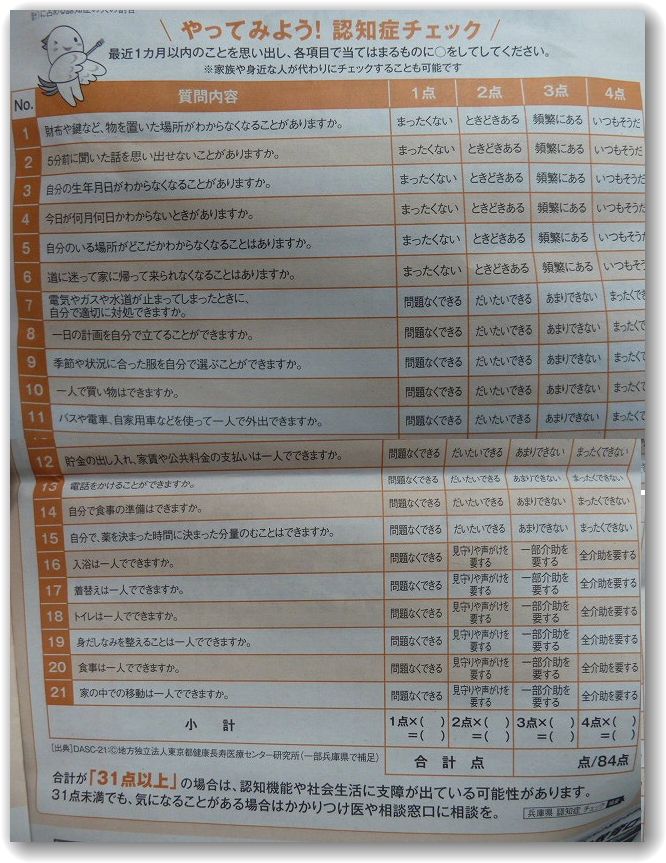 計)に占める認知症の人の割合
やってみよう! 認知症チェック
最近1カ月以内のことを思い出し、各項目で当てはまるものに○をしてしてください。
※家族や身近な人が代わりにチェックすることも可能です
No. 質問内容 1点 2点 3点 4点
1 財布や鍵など、物を置いた場所がわからなくなることがありますか。 まったくない ときどきある 頻繁にある いつもそうだ
2 5分前に聞いた話を思い出せないことがありますか。 まったくない ときどきある 頻繁にある いつもそうだ
3 自分の生年月日がわからなくなることがありますか。 まったくない ときどきある 頻繁にある いつもそうだ
4 今日が何月何日かわからないときがありますか。 まったくない ときどきある 頻繁にある いつもそうだ
5 自分のいる場所がどこだかわからなくなることはありますか。 まったくない ときどきある 頻繁にある いつもそう
6 道に迷って家に帰って来られなくなることはありますか。 まったくない ときどきある 頻繁にある いつもそう
7 電気やガスや水道が止まってしまったときに、
自分で適切に対処できますか。 問題なくできる だいたいできる あまりできない まったくで
8 一日の計画を自分で立てることができますか。 問題なくできる だいたいできる あまりできない まったく
9 季節や状況に合った服を自分で選ぶことができますか。 問題なくできる だいたいできる あまりできない まったく
10 一人で買い物はできますか。 問題なくできる だいたいできる あまりできない まったく
11 バスや電車、自家用車などを使って一人で外出できますか。 問題なくできる だいたいできる あまりできない まったく
12 貯金の出し入れ、家賃や公共料金の支払いは一人でできますか。 問題なくできる だいたいできる あまりできない まったくできない
13 電話をかけることができますか。 問題なくできる だいたいできる あまりできない まったくできない
14 自分で食事の準備はできますか。 問題なくできる だいたいできる あまりできない まったくできない
15 自分で、薬を決まった時間に決まった分量のむことはできますか。 問題なくできる だいたいできる あまりできない まったくできない
16 入浴は一人でできますか。 問題なくできる 見守りや声がけを要する 一部介助を要する 全介助を要する
17 着替えは一人でできますか。 問題なくできる 見守りや声がけを要する 一部介助を要する 全介助を要する
18 トイレは一人でできますか。 問題なくできる 見守りや声がけを要する 一部介助を要する 全介助を要する
19 身だしなみを整えることは一人でできますか。 問題なくできる 見守りや声がけを要する 一部介助を要する 全介助を要する
20 食事は一人でできますか。 問題なくできる 見守りや声がけを要する 一部介助を要する 全介助を要する
21 家の中での移動は一人でできますか。 問題なくできる 見守りや声がけを要する 一部介助を要する 全介助を要する
小計 1点×( ) 2点×( ) 3点×( ) 4点×( )
=( ) =( ) =( ) =( )
[出典]DASC-21:©地方独立法人東京都健康長寿医療センター研究所(一部兵庫県で補足)
合計点 点/84点
合計が「31点以上」の場合は、認知機能や社会生活に支障が出ている可能性があります。
31点未満でも、気になることがある場合はかかりつけ医や相談窓口に相談を。
兵庫県 認知症 チェック 検索